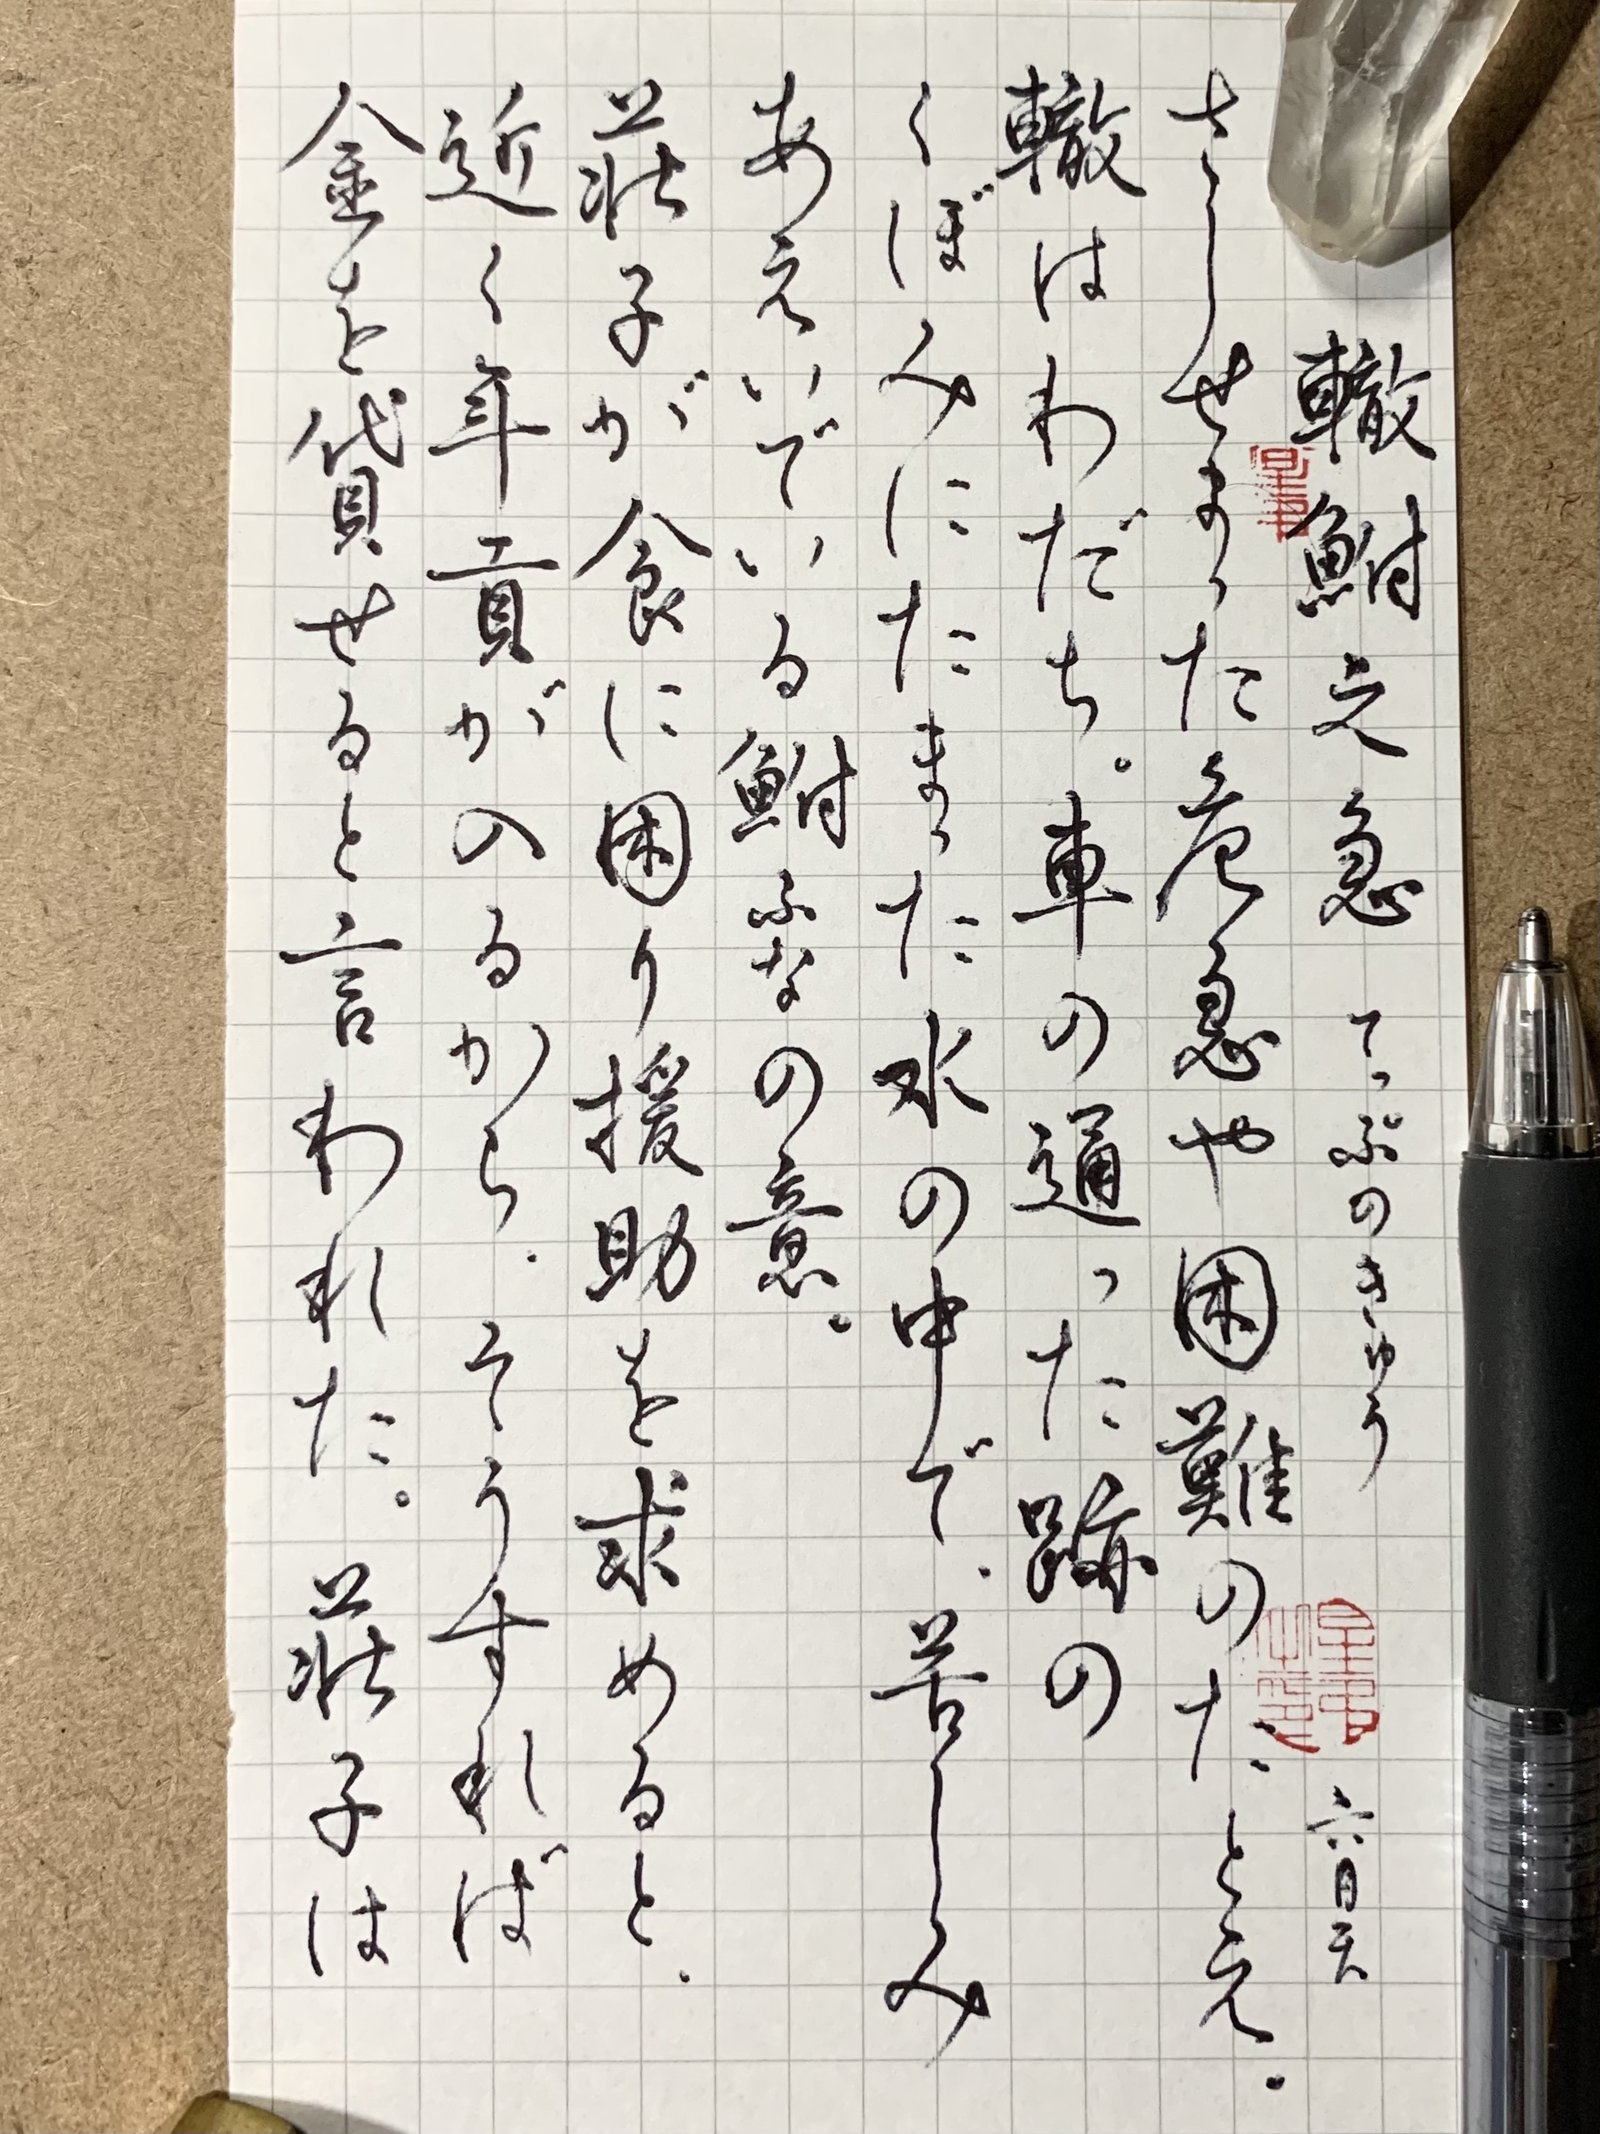 轍鮒之急 てっぷのきゅう
さしせまった危急や困難のたとえ。
轍はわだち。車の通った跡の
くぼみにたまった水の中で、苦しみ
あえいでいる鮒ふなの意。
荘子が食に困り援助を求めると、
近く年貢が入るから、そうすれば
金を貸せると言われた。荘子は